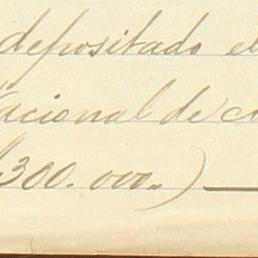 depositado el
Nacional de c
$300.000.)